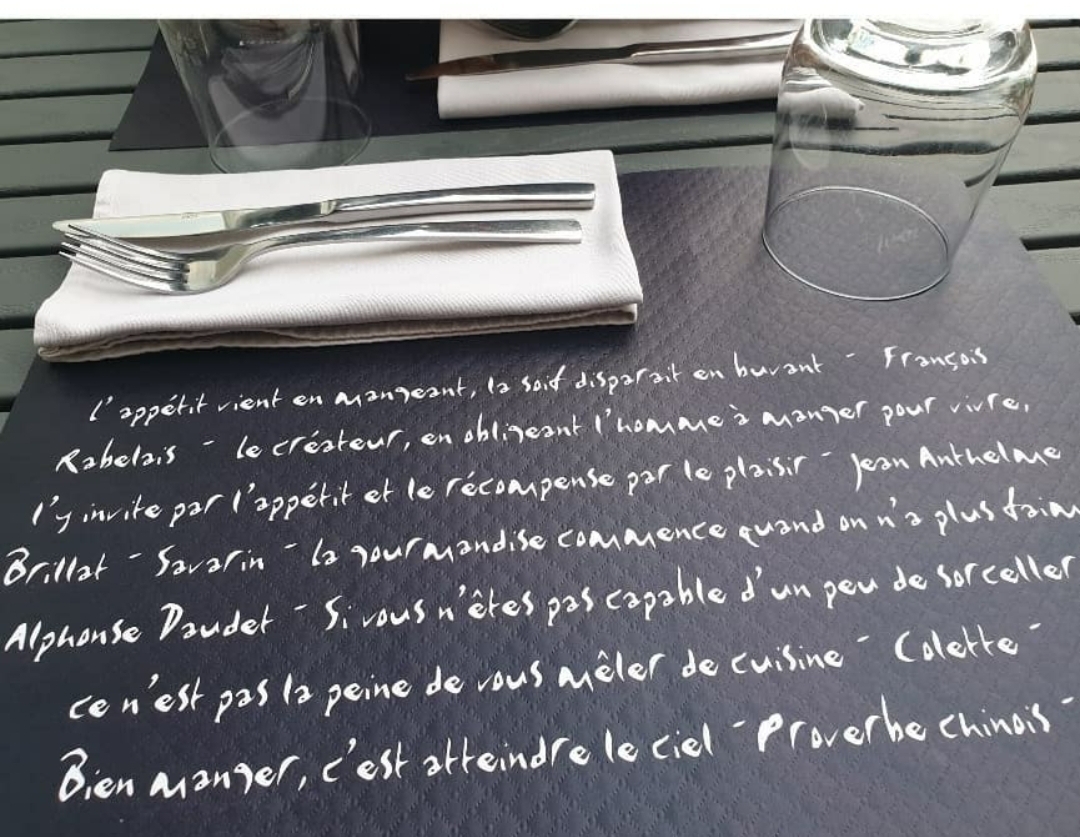 l'appétit vient en mangeant, la soif disparait en buvant - François
Rabelais - le créateur, en obligeant l'homme à manger pour vivre,
l'y invite par l'appétit et le récompense par le plaisir - Jean Anthelme
Brillat - Savarin - la gourmandise commence quand on n'a plus faim
Alphonse Daudet - Si vous n'êtes pas capable d'un peu de sorceller
ce n'est pas la peine de vous mêler de cuisine - Colette -
Bien manger, c'est atteindre le ciel - Proverbe chinois -